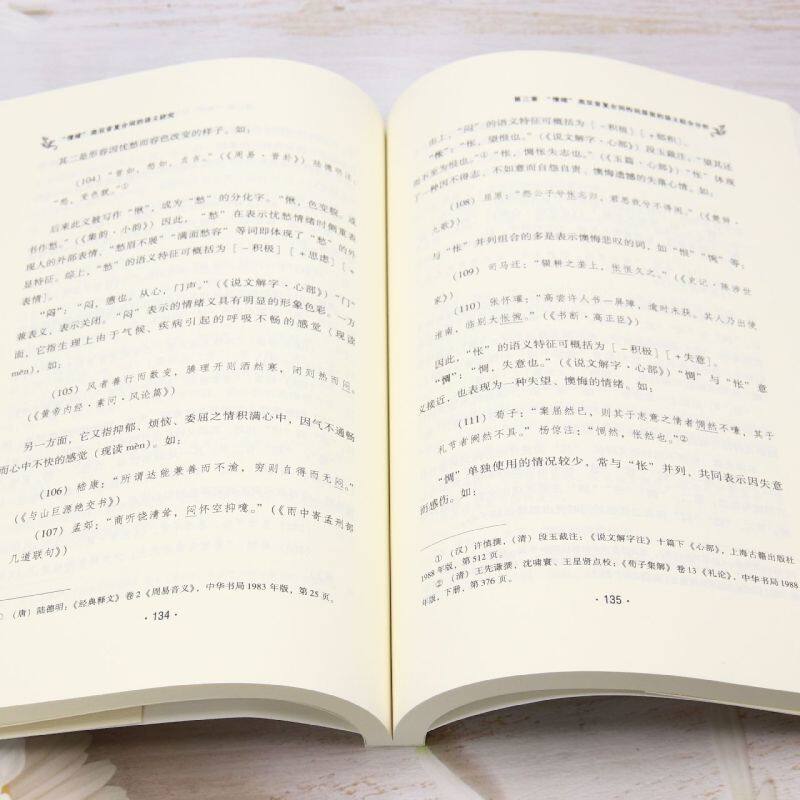 “情绪”类双音复合词的语义研究
其二是形容因忧愁而容色改变的样子。如：
（104）“晋如，愁如，贞吉。”（《周易·晋卦》）陆德明注：
“愁，变色貌。”①
后来此义被写作“愀”，成为“愁”的分化字。“愀，色变貌。或
书作愁。”（《集韵·小韵》）因此，“愁”在表示忧愁情绪时侧重表
现人的外部表情，“愁眉不展”“满面愁容”等词即体现了“愁”的外
显特征。综上，“愁”的语义特征可概括为［－积极］［＋思虑］［＋
表情］。
“闷”：“闷，懑也。从心，门声。”（《说文解字·心部》）“门”
兼表义，表示关闭。“闷”表示的情绪义具有明显的形象色彩。一方
面，它指生理上由于气候、疾病引起的呼吸不畅的感觉（现读
mēn），如：
（105）风者善行而数变，腠理开则洒然寒，闭则热而闷。
（《黄帝内经·素问·风论篇》）
另一方面，它又指抑郁、烦恼、委屈之情积满心中，因气不通畅
而心中不快的感觉（现读mèn）。如：
（106）嵇康：“所谓达能兼善而不渝，穷则自得而无闷。”
（《与山巨源绝交书》）
（107）孟郊：“商听饶清耸，闷怀空抑噫。”（《雨中寄孟刑部
几道联句》）
①（唐）陆德明：《经典释文》卷2《周易音义》，中华书局1983年版，第25页。
·134·
第三章 “情绪”类双音复合词构词语素的语义组合分析
由上，“闷”的语义特征可概括为［－积极］［＋郁积］。
“怅”：“怅，望恨也。”（《说文解字·心部》）段玉裁注，“望其还
而不至为恨也。”①“怅，惆怅失志也。”（《玉篇·心部》）“怅”体现
了一种因不得志、不如意而自怨自责、懊悔遗憾的失落心情。如：
（108）屈原：“怨公子兮怅忘归，君思我兮不得闲。”（《楚辞·
九歌》）
与“怅”并列组合的多是表示懊悔悲叹的词，如“恨”“惋”等：
（109）司马迁：“辍耕之垄上，怅恨久之。”（《史记·陈涉世
家》）
（110）张怀瓘：“高尝许人书一屏障，逾时未获。其人乃出使
淮南，临别大怅惋。”（《书断·高正臣》）
因此，“怅”的语义特征可概括为［－积极］［＋失意］。
“惆”：“惆，失意也。”（《说文解字·心部》）“惆”与“怅”意
义接近，也表现为一种失望、懊悔的情绪。如：
（111）荀子：“案屈然已，则其于志意之情者惆然不嗛，其于
礼节者阙然不具。”杨倞注：“惆然，怅然也。”②
“惆”单独使用的情况较少，常与“怅”并列、共同表示因失意
而感伤。如：
①（汉）许慎撰，（清）段玉裁注：《说文解字注》十篇下《心部》，上海古籍出版社
1988年版，第512页。
②（清）王先谦撰，沈啸寰、王星贤点校：《荀子集解》卷13《礼论》，中华书局1988
年版，下册，第376页。
·135·